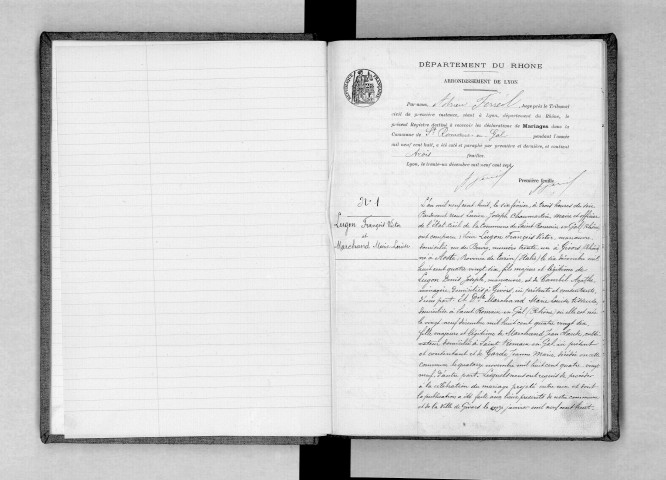 DÉPARTEMENT DU RHONE
ARRONDISSEMENT DE LYON
Par nous, Juge près le Tribunal
civil de première instance, séant à Lyon, département du Rhône, le
présent Registre destiné à recevoir les déclarations de Mariages dans la
Commune de St Romain-en-Gal pendant l'année
mil neuf cent huit, a été coté et paraphé par première et dernière, et contenant
trois feuilles.
Lyon, le trente-un décembre mil neuf cent sept.
Première feuille.
N° 1
Lugon François Victor
et
Marchand Marie Louise
L'an mil neuf cent huit, le six février, à trois heures du soir
Pardevant nous Joseph Chaumartin, maire et officier
de l'état civil de la commune de Saint Romain en Gal (Rhône)
ont comparu: sieur Lugon François Victor, manœuvre,
domicilié, rue du Bourg, numéro trente un à Givors (Rhône)
né à Aoste, Province de Turin (Italie) le dix décembre mil
huit cent quatre vingt dix, fils majeur et légitime de
Lugon Denis Joseph, manœuvre et de Agathe,
ménagère, domiciliés à Givors, ici présents et consentants.
D'une part. Et Dlle Marchand Marie Louise
domiciliée à Saint Romain en Gal (Rhône) où elle est née
le neuf décembre mil huit cent quatre vingt dix
fille majeure et légitime de Marchand Jean Claude, culti-
vateur, domicilié à Saint Romain en Gal, ici présent
et consentant et de Garde Jeanne Marie décédée en cette
commune le quatorze novembre mil huit cent quatre vingt
neuf, d'autre part. Lesquels nous ont requis de procéder
à la célébration du mariage projeté entre eux et dont
la publication a été faite aux lieux prescrits de notre commune
et de la ville de Givors le onze janvier mil neuf cent huit.